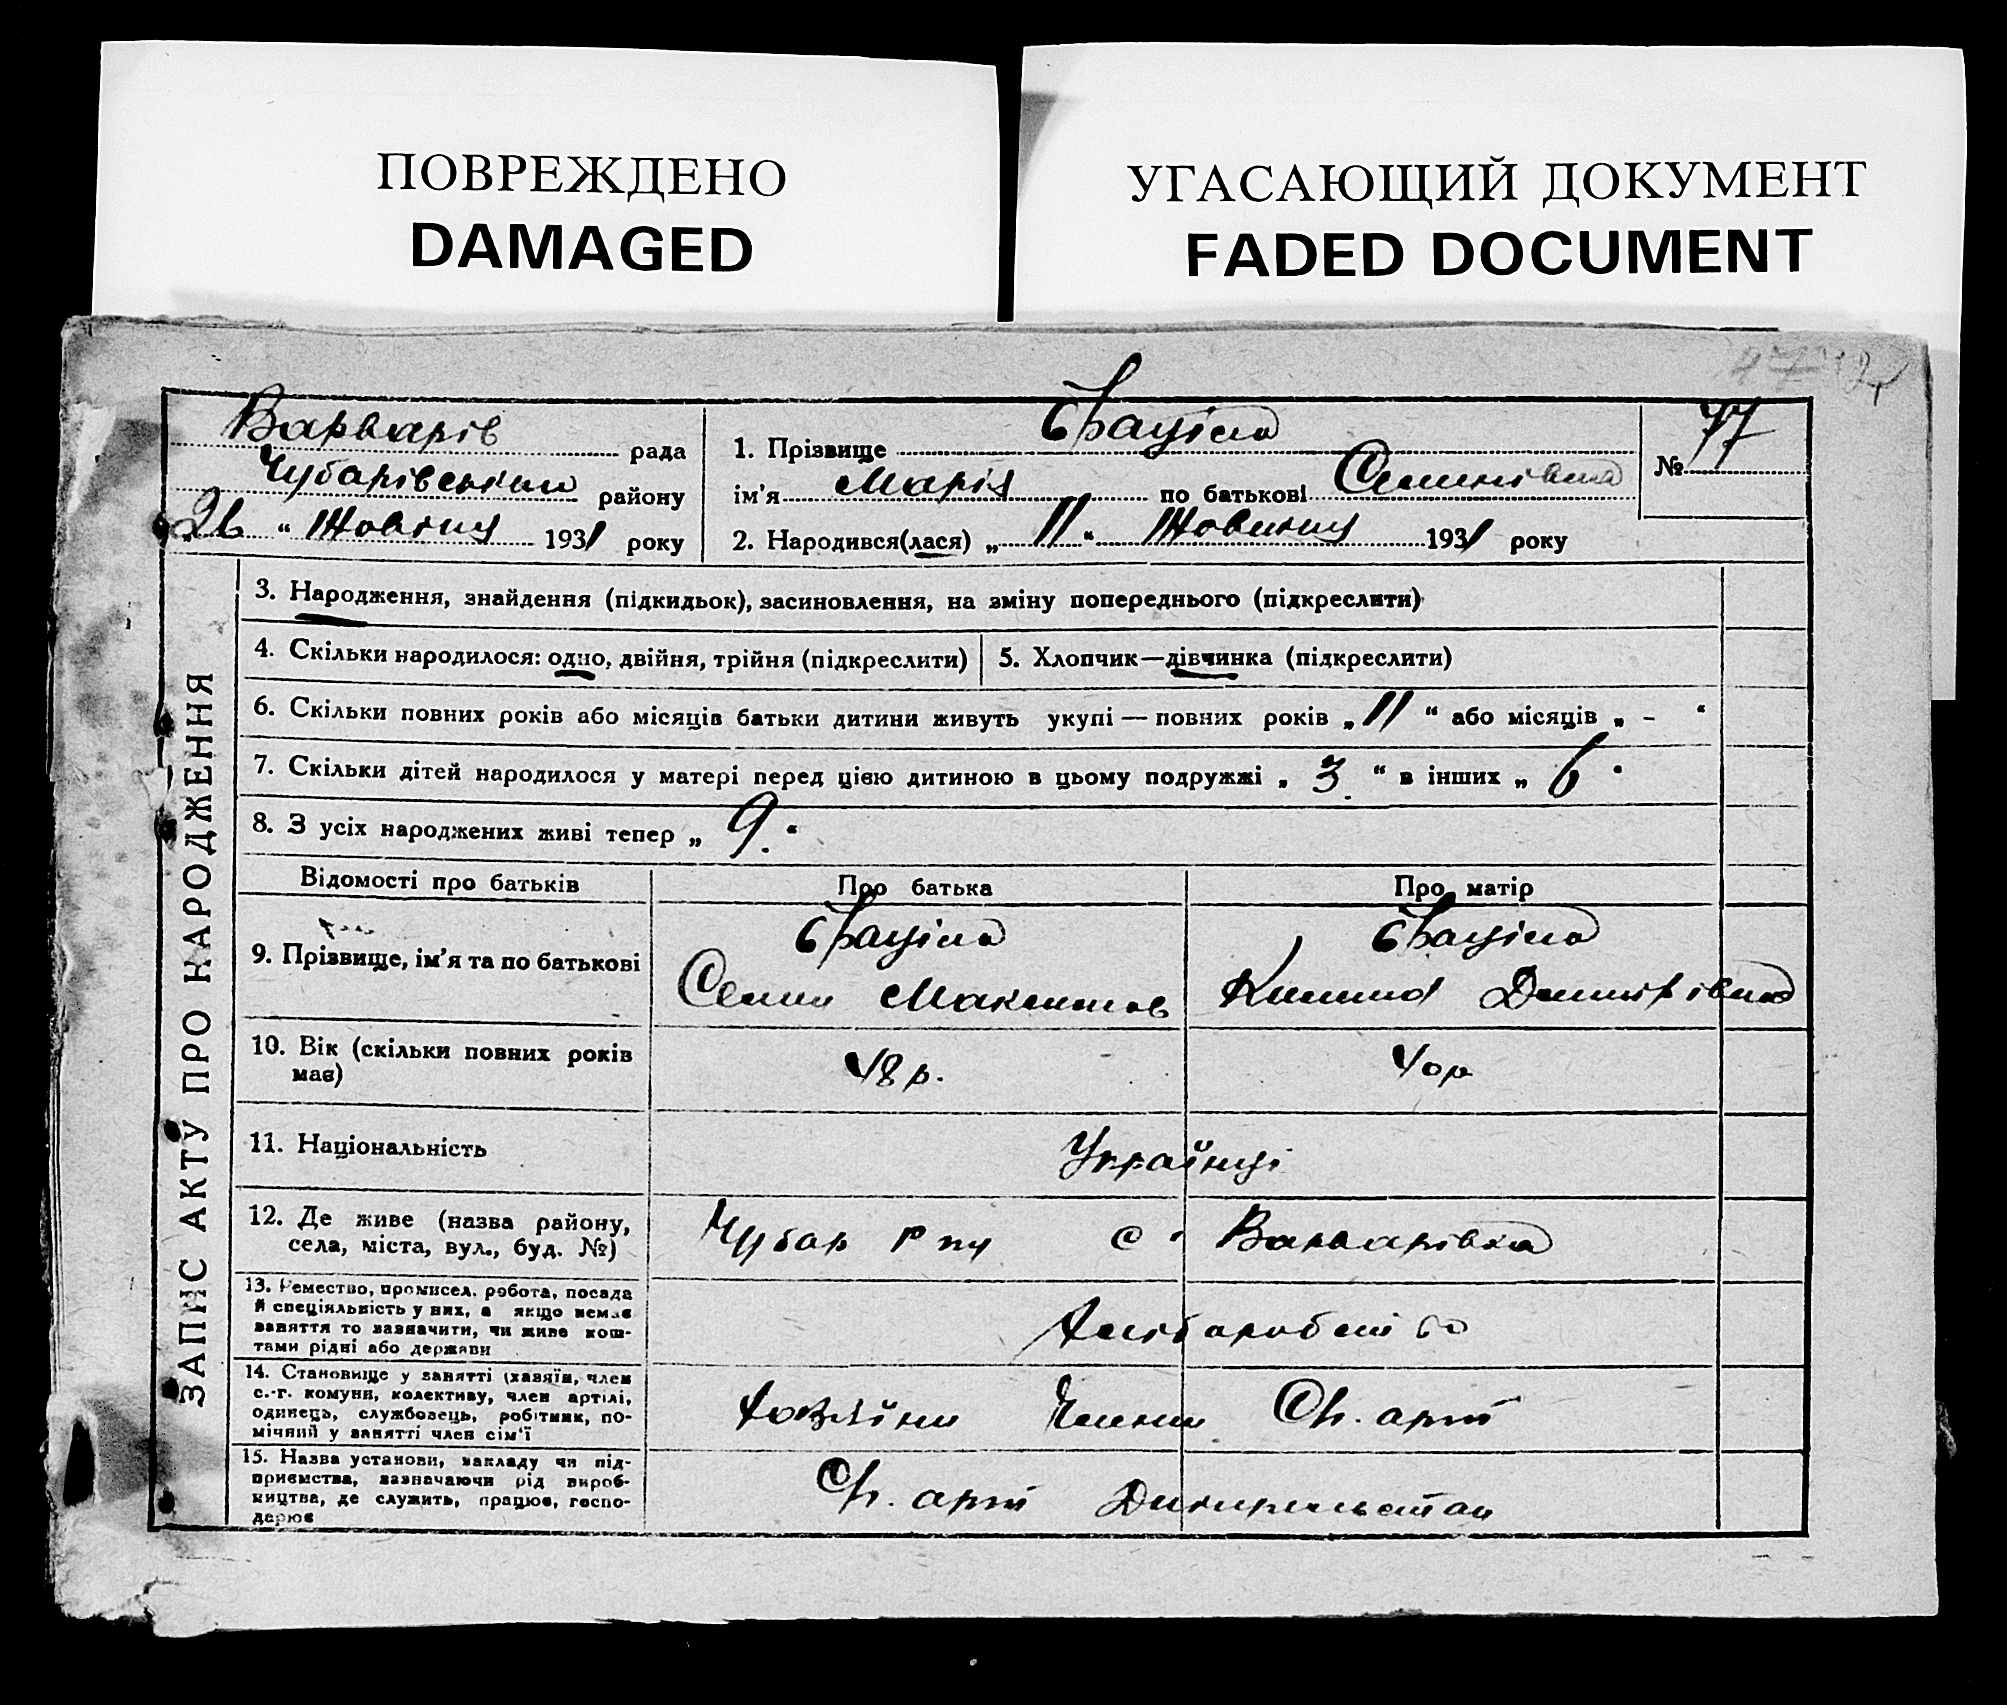 ПОВРЕЖДЕНО
DAMAGED
УГАСАЮЩИЙ ДОКУМЕНТ
FADED DOCUMENT
Варварів рада
Чубарівський району
„26“ Жовтня 1931 року
1. Прізвище
ім'я Марія по батькові Семенівна
2. Народився(лася) „11“ Жовтня 1931 року
№ 77
ЗАПИС АКТУ ПРО НАРОДЖЕННЯ
3. Народження, знайдення (підкидьок), засиновлення, на зміну попереднього (підкреслити)
4. Скільки народилося: одно, двійня, трійня (підкреслити)
5. Хлопчик—дівчинка (підкреслити)
6. Скільки повних років або місяців батьки дитини живуть укупі — повних років „11“ або місяців „-“
7. Скільки дітей народилося у матері перед цією дитиною в цьому подружжі „3“ в інших „6“
8. З усіх народжених живі тепер „9“
Відомості про батьків Про батька Про матір
9. Прізвище, ім'я та по батькові
Семен Максимов
Дмитрівна
10. Вік (скільки повних років має) 48 р. 40 р
11. Національність Українці
12. Де живе (назва району, села, міста, вул., буд. №) Чубар р ну с. Варварівка
13. Ремество, промисел. робота, посада
й спеціяльність у них, а якщо немає
заняття то зазначити, чи живе кош-
тами рідні або держави
Хліборобство
14. Становище у занятті (хазяїн, член
с.-г. комуни, колективу, член артілі,
одинець, службовець, робітник, по-
мічний у занятті член сім'ї
Хазяїни Члени Сг. арт
15. Назва установи, закладу чи під-
приємства, зазначаючи рід вироб-
ництва, де служить, працює, госпо-
дарює
Сг. арт